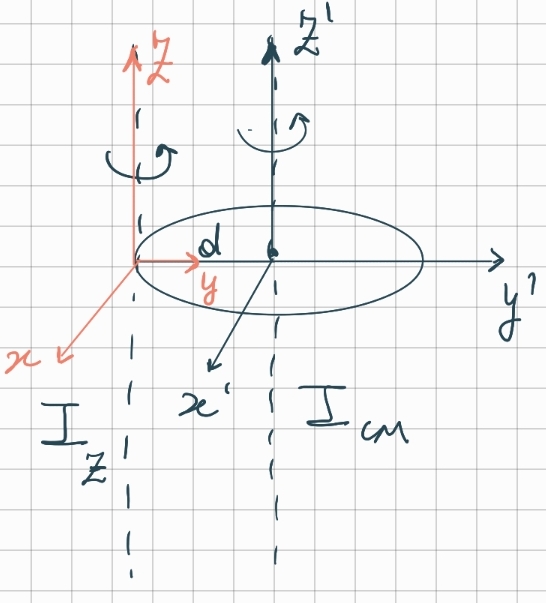 Z
Z'
d
y
y'
x
x'
I_z
I_CM